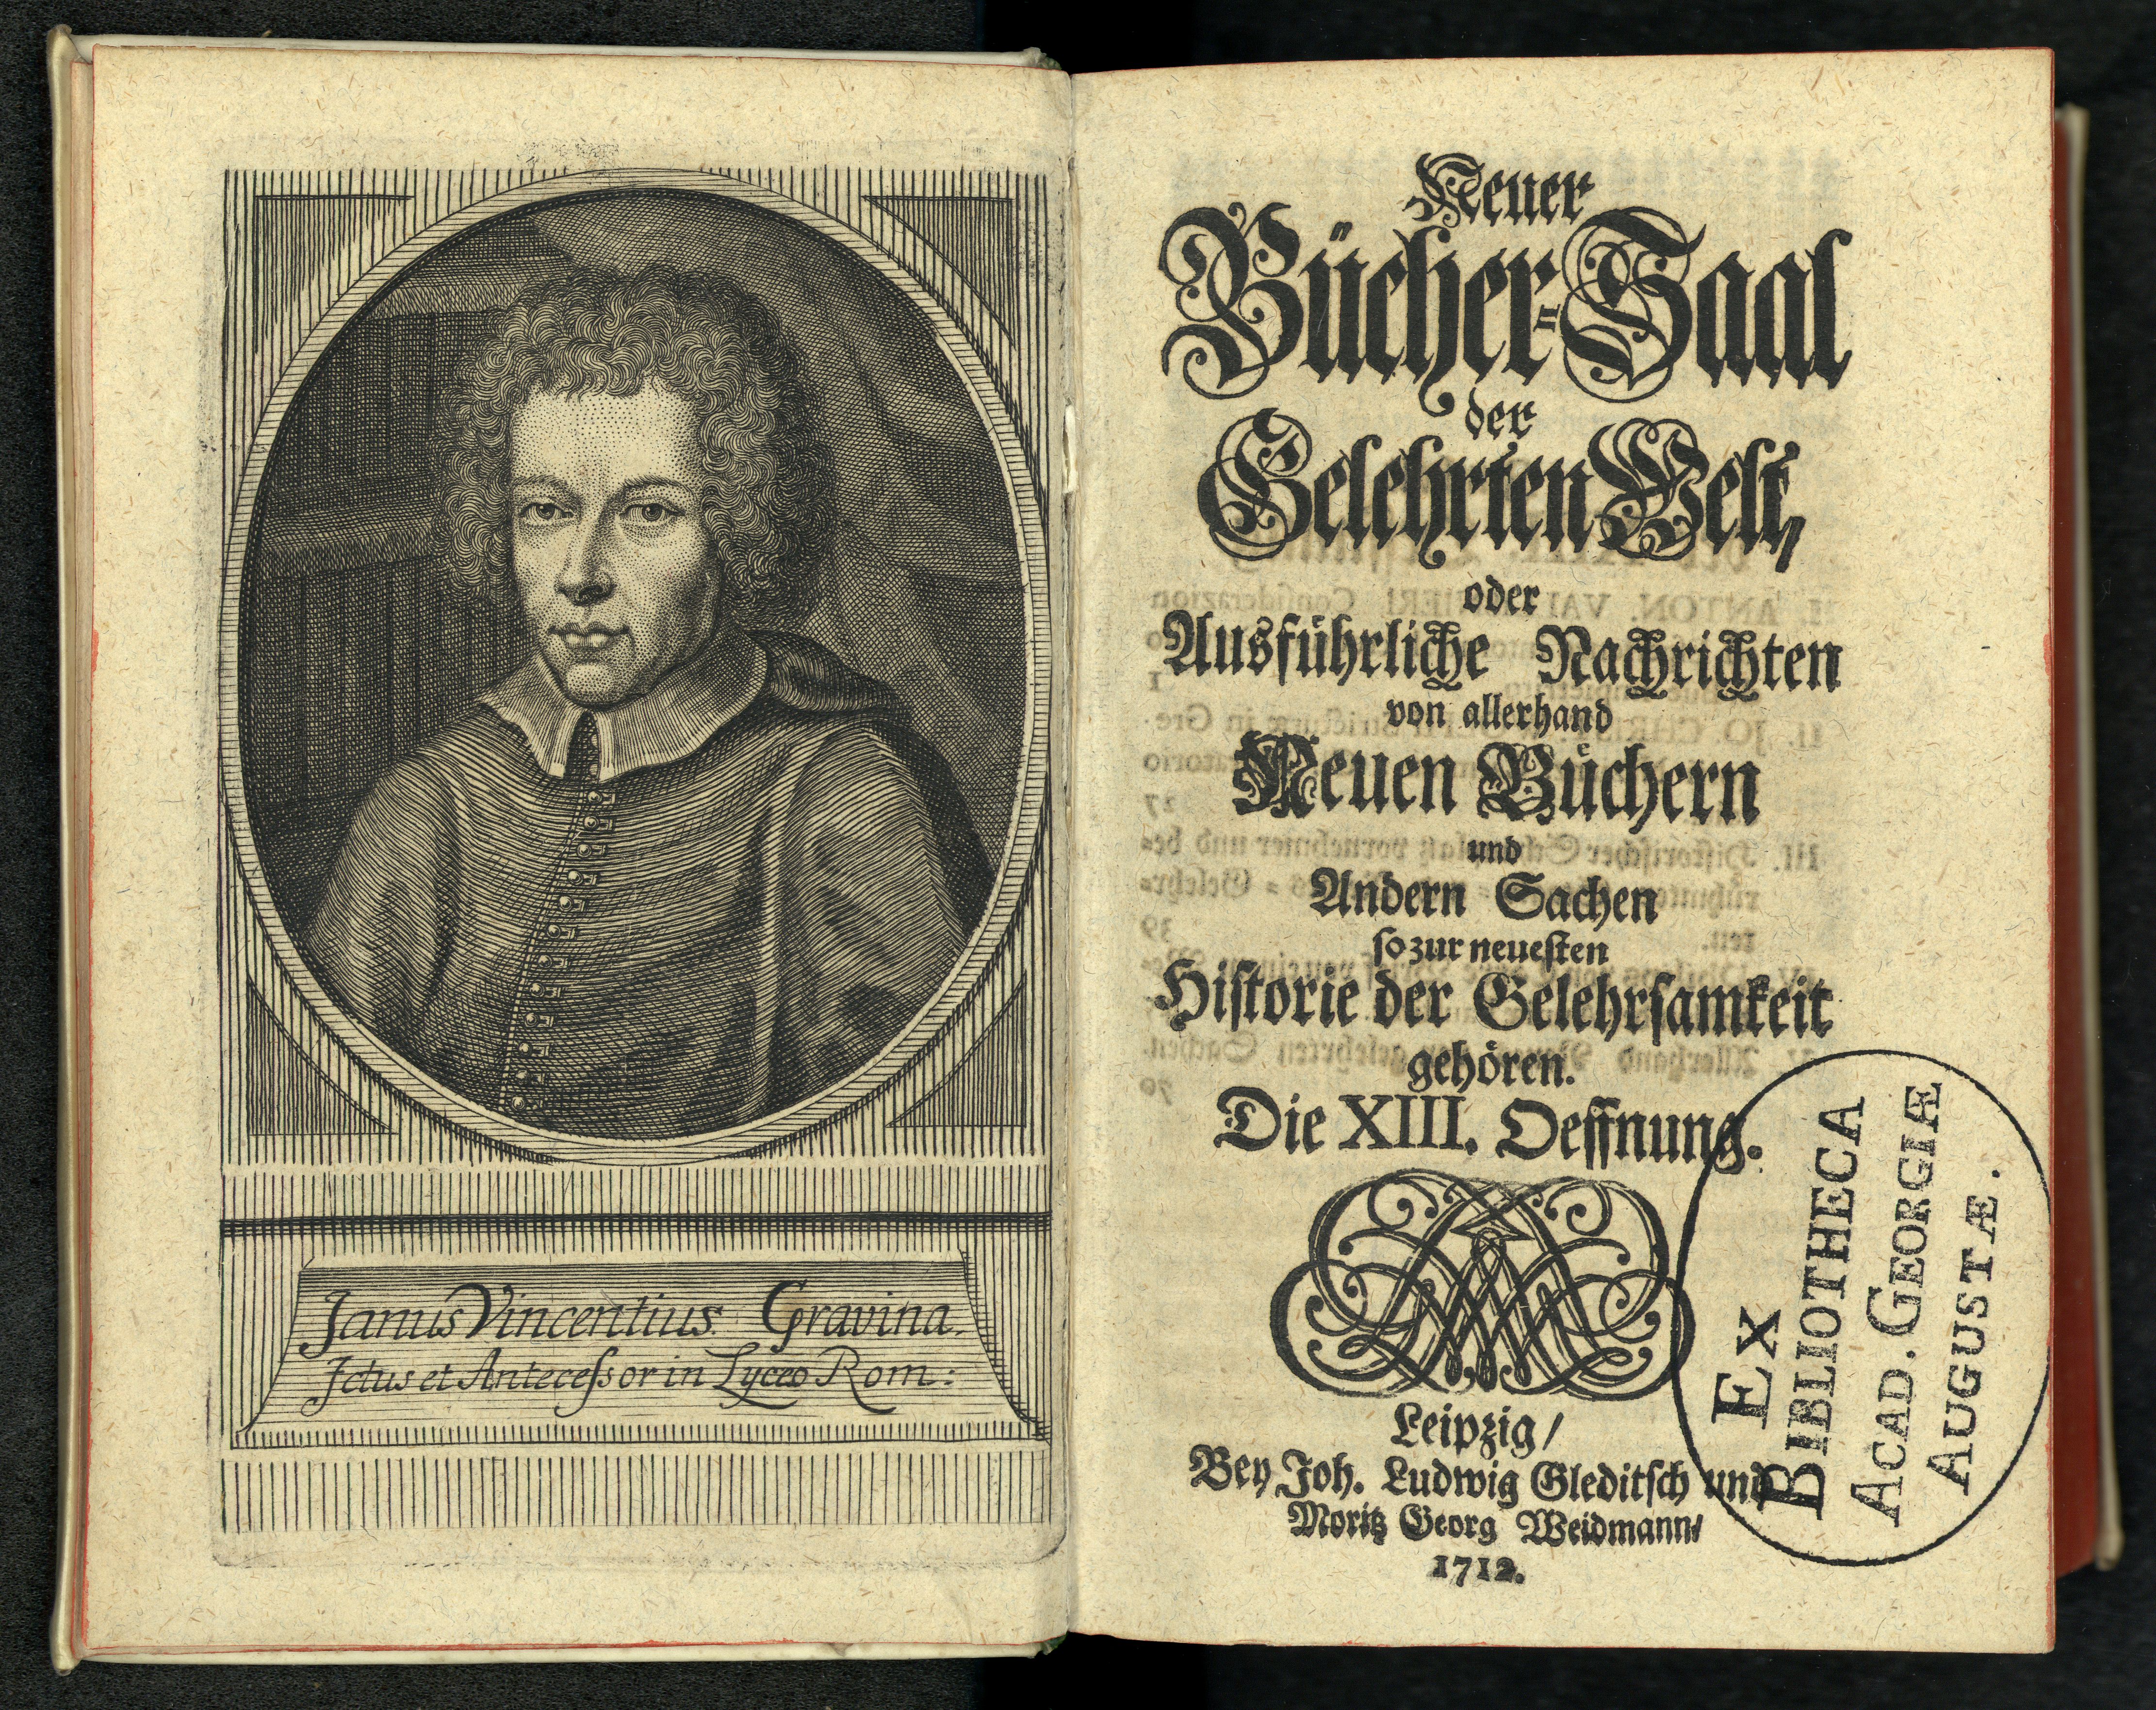 Janus Vincentius Gravina.
Jctus et Antecessor in Lyceo Rom:
Neuer
Bücher-Saal
der
Gelehrten Welt,
oder
Ausführliche Nachrichten
von allerhand
Neuen Büchern
und
Andern Sachen
so zur neuesten
Historie der Gelehrsamkeit
gehören.
Die XIII. Oeffnung.
Leipzig/
Bey Joh. Ludwig Gleditsch und
Moritz Georg Weidmann/
1712.
EX
BIBLIOTHECA
ACAD. GEORGIÆ
AUGUSTÆ.